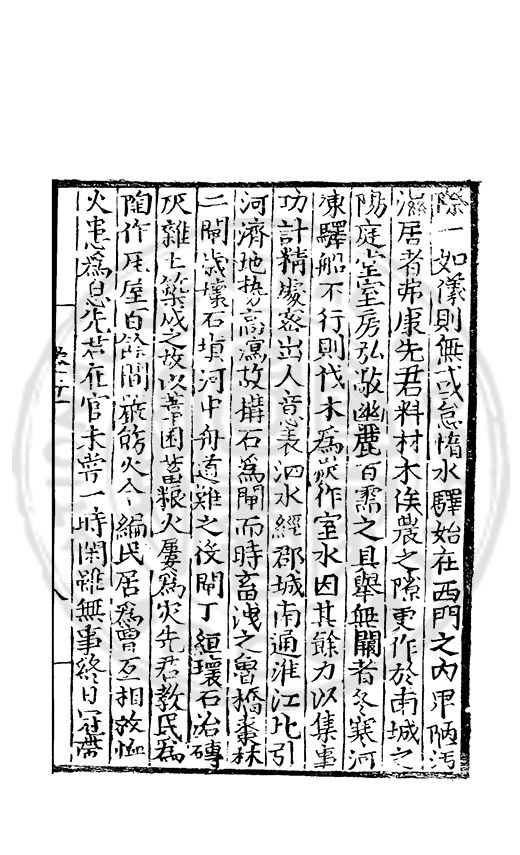 除一如儀則無或怠惰水驛始在西門之內卑陋汚
濕居者弗康先君料材木俟農之隙更作於南城之
陽庭堂室房弘敞幽麗百需之具舉無闕者冬寒河
凍驛船不行則伐木爲炭作室水因其餘力以集事
功計精慮密出人意表泗水經郡城南通淮江北引
河濟地勢高瀉故搆石爲閘而時畜洩之魯橋棗林
二閘歲壞石塡河中舟道難之役閘丁絙壞石治磚
灰雜土築成之故以葦囷苫粮火屢爲灾先君教民爲
陶作瓦屋百餘間嚴飭火令編民居爲曹互相救恤
火患爲息先君在官未嘗一時閑雖無事終日冠帶
卷二
八